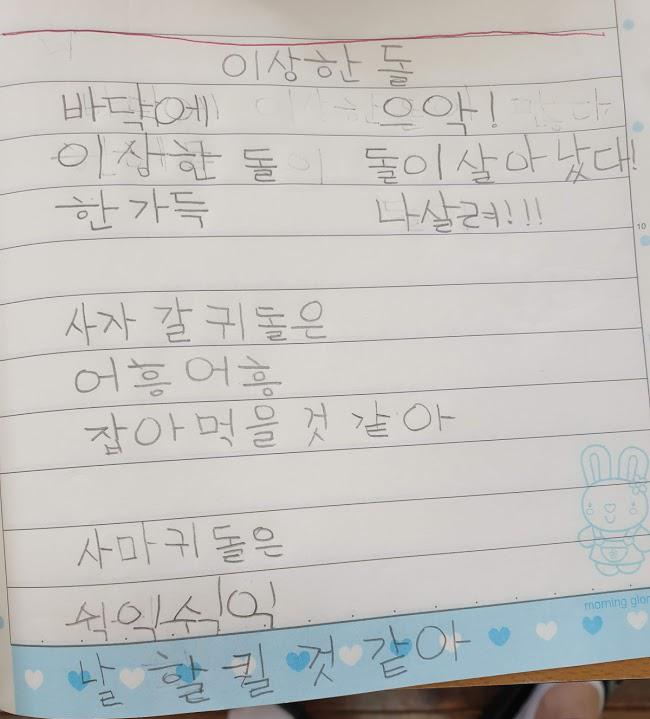 이상한 돌
바닥에
이상한 돌
한가득
사자 갈귀돌은
어흥어흥
잡아먹을 것 같아
사마귀돌은
쉭익쉭익
날 할퀼 것 같아
으악!
돌이살아났다!
나살려!!!
10
morning glor